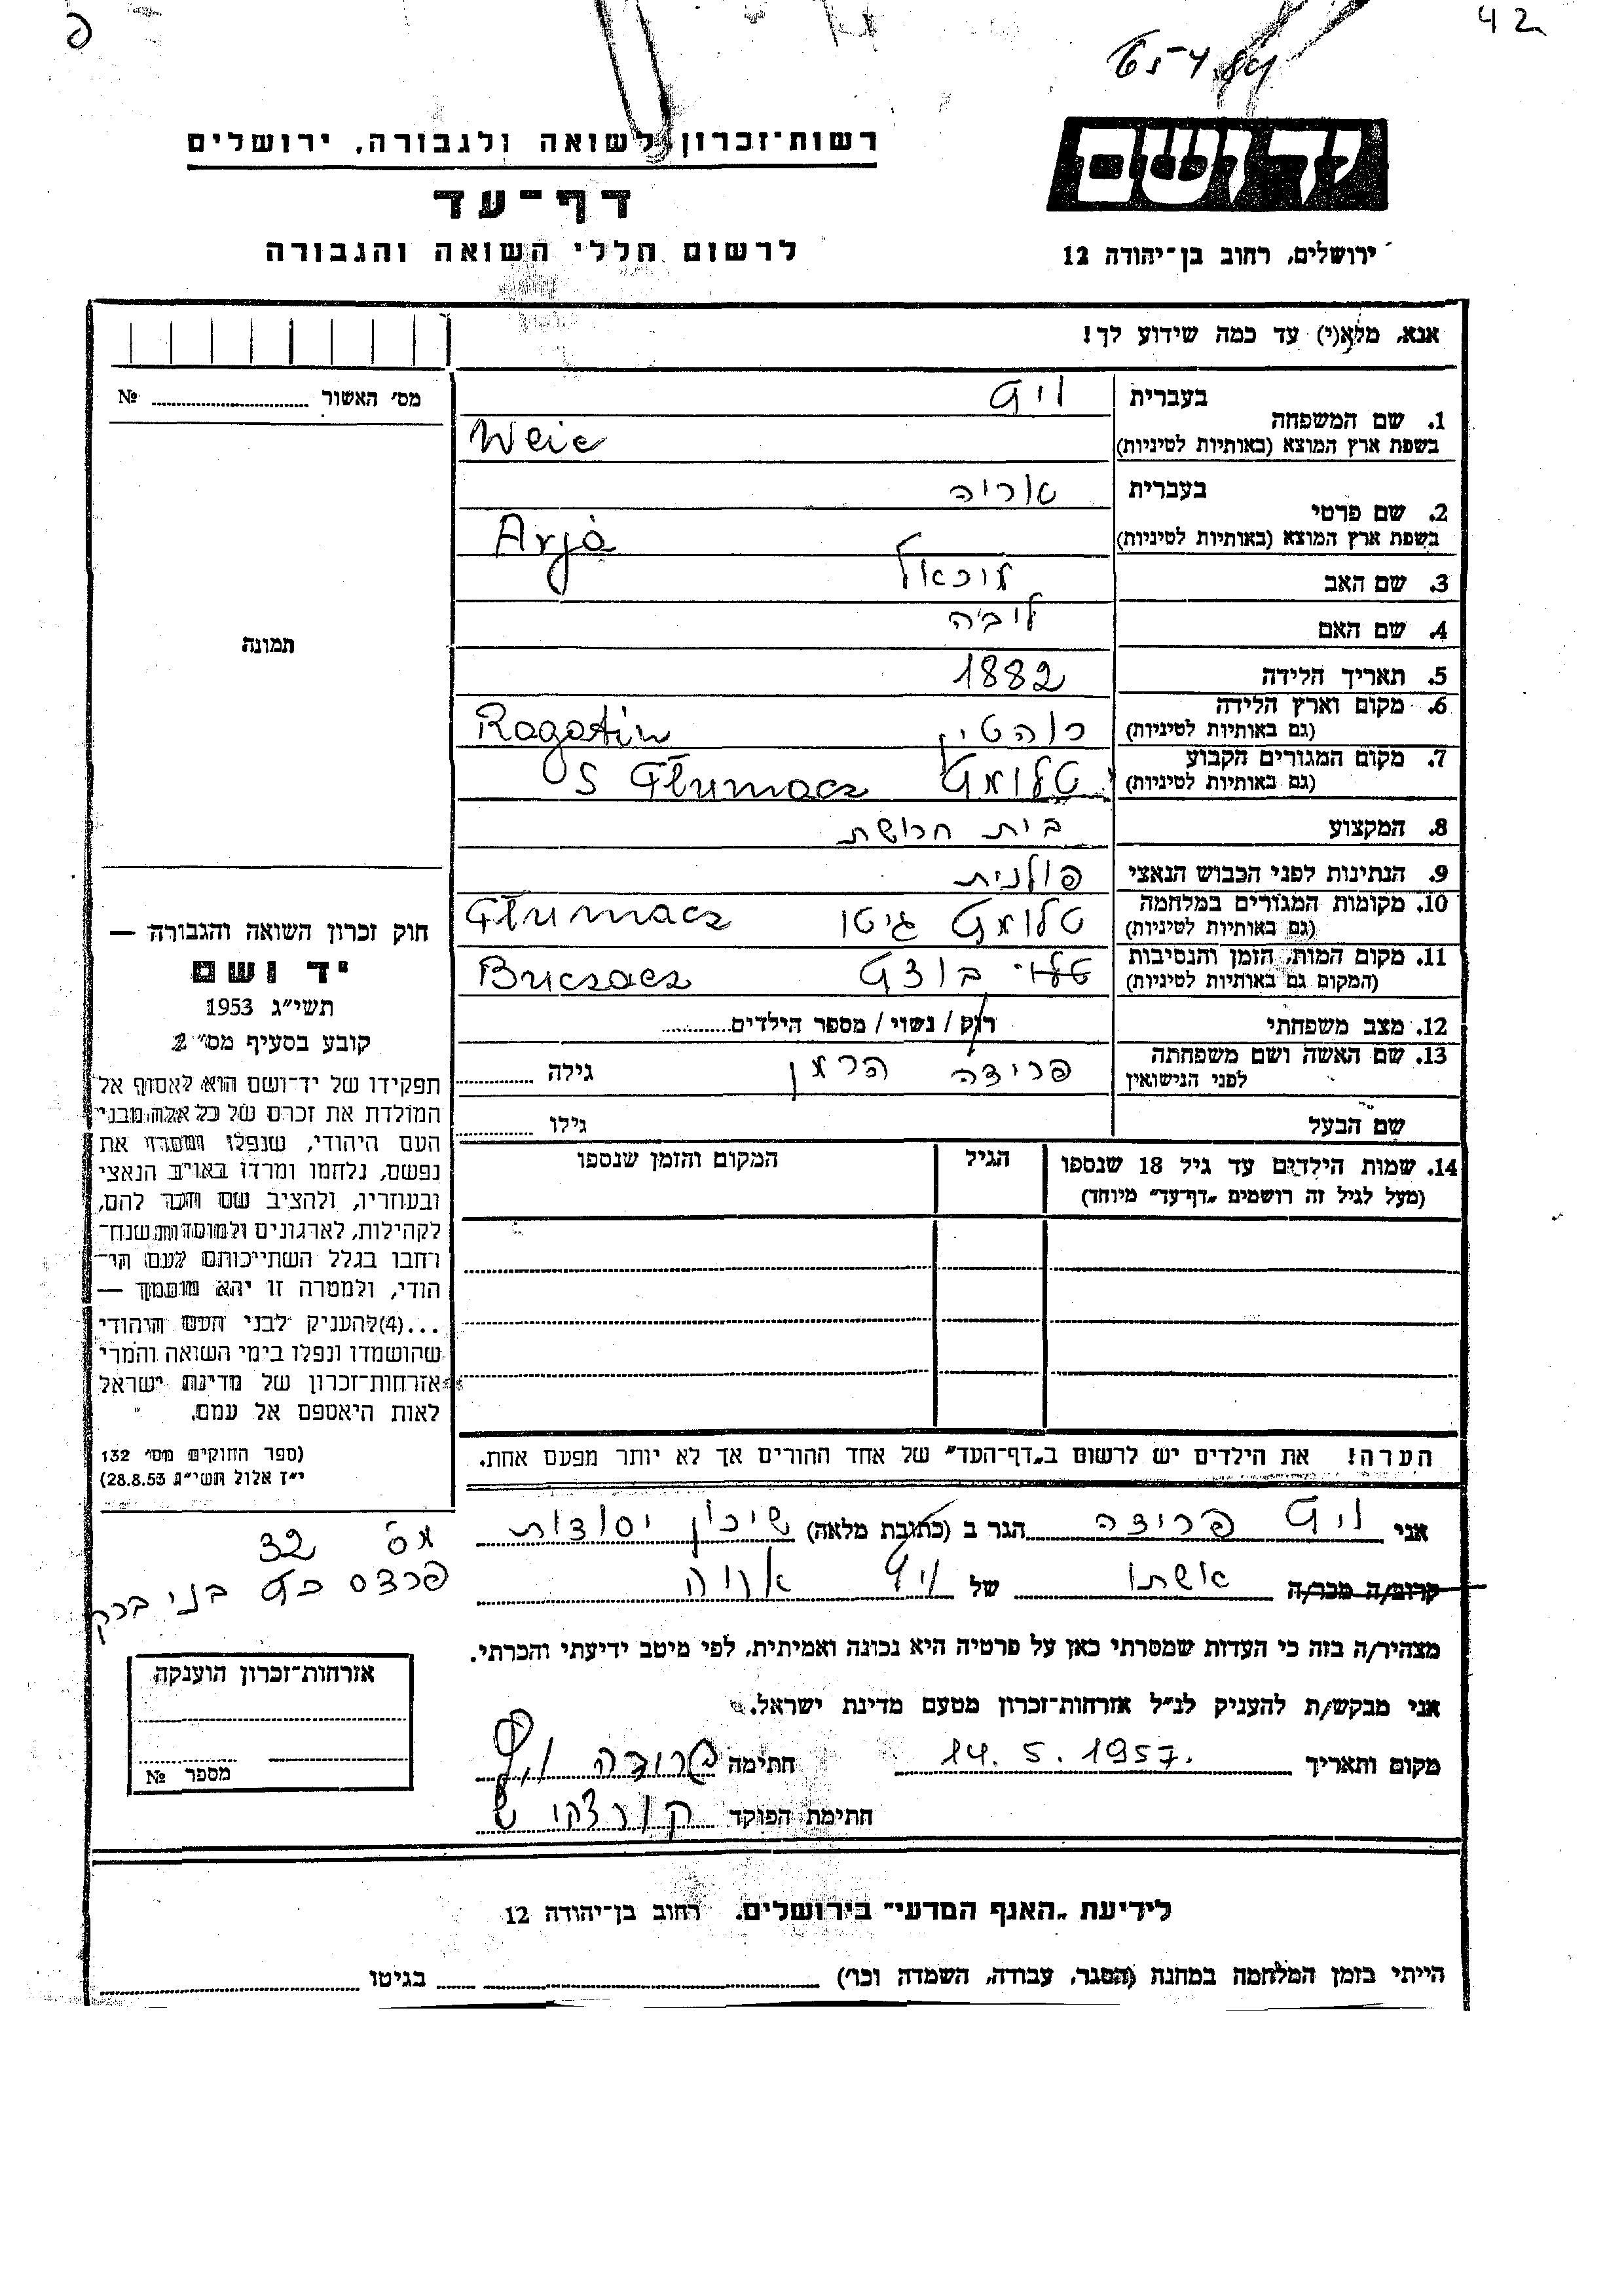 42
רשות־זכרון לשואה ולגבורה, ירושלים
דף־עד
לרשום חללי השואה והגבורה
יד ושם
ירושלים, רחוב בן־יהודה 12
אנא, מלא(י) עד כמה שידוע לך!
מס׳ האשור № ........
תמונה
בעברית
1. שם המשפחה
בשפת ארץ המוצא (באותיות לטיניות)
Weic
בעברית אריה
2. שם פרטי
בשפת ארץ המוצא (באותיות לטיניות)
Arjà
3. שם האב מיכאל
4. שם האם ליבה
5. תאריך הלידה 1882
6. מקום וארץ הלידה
(גם באותיות לטיניות)
רוהטין Rogatin
7. מקום המגורים הקבוע
(גם באותיות לטיניות)
טלומץ Tłumacz
8. המקצוע בית חרושת
9. הנתינות לפני הכבוש הנאצי פולנית
10. מקומות המגורים במלחמה
(גם באותיות לטיניות)
טלומץ גיטו Tłumacz
11. מקום המות, הזמן והנסיבות
(המקום גם באותיות לטיניות)
בוצץ Buczacz
12. מצב משפחתי רוק / נשוי / מספר הילדים........
13. שם האשה ושם משפחתה
לפני הנישואין
פרידה הרמן גילה ........
שם הבעל גילו ........
14. שמות הילדים עד גיל 18 שנספו
(מעל לגיל זה רושמים „דף־עד״ מיוחד)
הגיל
המקום והזמן שנספו
הערה! את הילדים יש לרשום ב„דף־העד״ של אחד ההורים אך לא יותר מפעם אחת.
חוק זכרון השואה והגבורה —
יד ושם
תשי״ג 1953
קובע בסעיף מס׳ 2
תפקידו של יד־ושם הוא לאסוף אל
המולדת את זכרם של כל אלה מבני
העם היהודי, שנפלו ומסרו את
נפשם, נלחמו ומרדו באויב הנאצי
ובעוזריו, ולהציב שם וזכר להם,
לקהילות, לארגונים ולמוסדות שנח־
רחבו בגלל השתייכותם לעם הי־
הודי, ולמטרה זו יהא מוסמך —
...(4) להעניק לבני העם היהודי
שהושמדו ונפלו בימי השואה והמרי
אזרחות־זכרון של מדינת ישראל
לאות היאספם אל עמם.
(ספר החוקים מס׳ 132
י״ז אלול תשי״ג 28.8.53)
אני ויץ פרידה הגר ב (כתובת מלאה) שיכון יסודות
מס 32
פרדס כץ בני ברק
קרוב/ה מכר/ה אשתו של ויץ אריה
מצהיר/ה בזה כי העדות שמסרתי כאן על פרטיה היא נכונה ואמיתית, לפי מיטב ידיעתי והכרתי.
אני מבקש/ת להעניק לנ״ל אזרחות־זכרון מטעם מדינת ישראל.
מקום ותאריך 14.5.1957. חתימה פרידה ויץ
חתימת הפוקד
אזרחות־זכרון הוענקה
מספר №
לידיעת „האגף המדעי״ בירושלים. רחוב בן־יהודה 12
הייתי בזמן המלחמה במחנה (הסגר, עבודה, השמדה וכו׳) ........ בגיטו ........